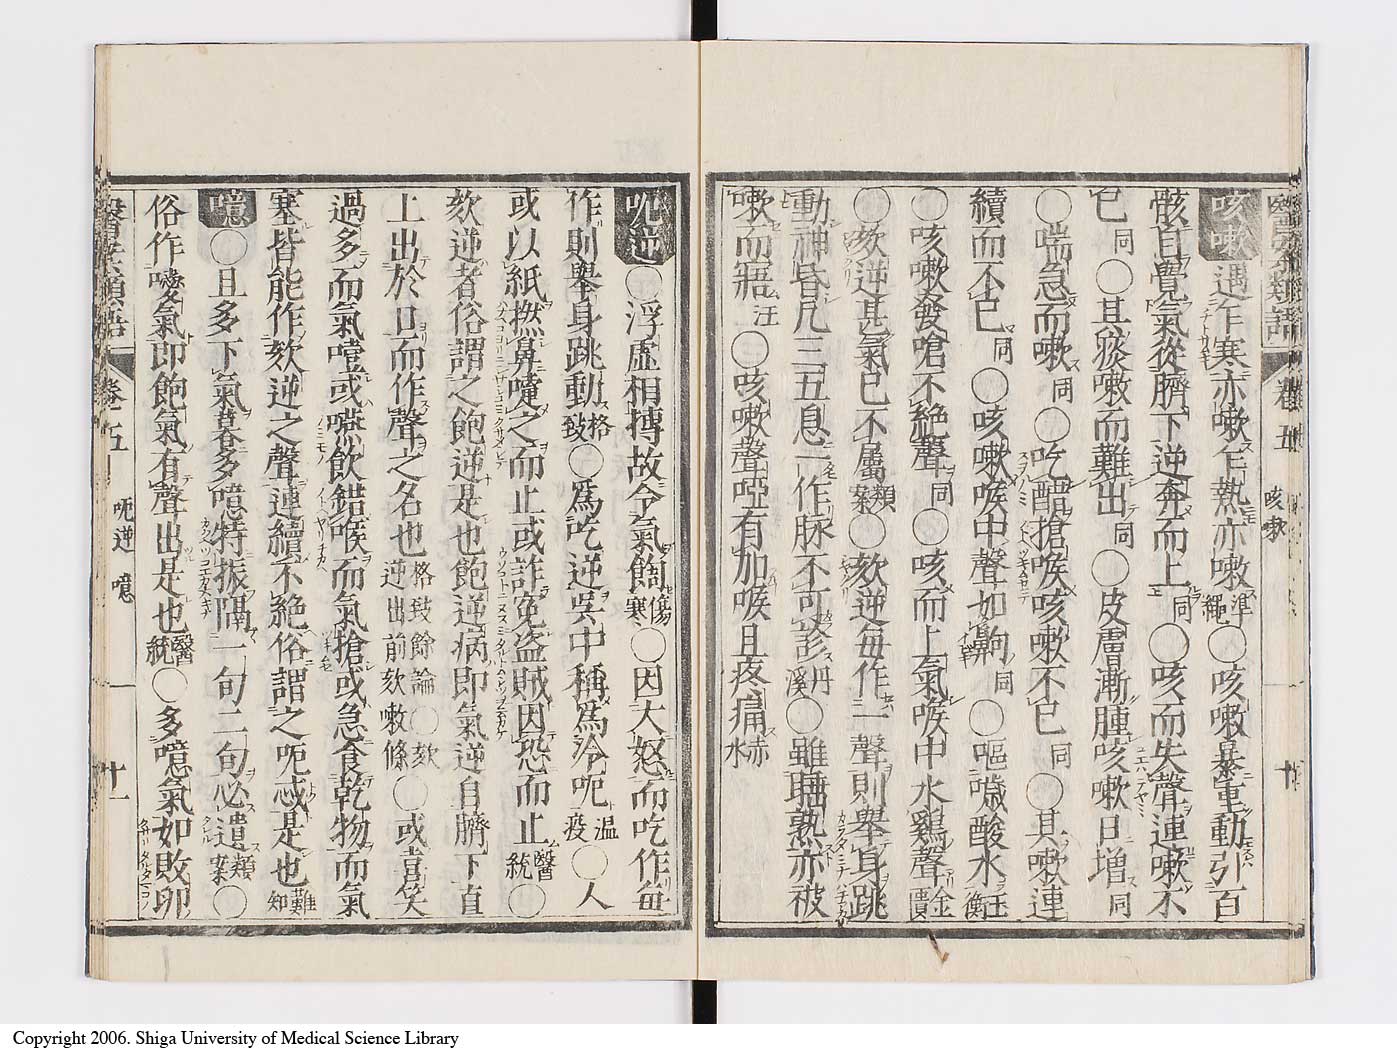 醫案類語 卷五 咳嗽 十
咳嗽 遇乍寒亦嗽乍熱亦嗽準繩〇咳嗽暴重動引百
骸自覺氣從臍下逆奔而上同〇咳而失聲連嗽不
已同〇其痰嗽而難出同〇皮膚漸腫咳嗽日增同
〇喘急而嗽同〇吃醋搶喉咳嗽不已同〇其嗽連
續而不已同〇咳嗽喉中聲如齁同〇嘔噦酸水玉衡
〇咳嗽發嗆不絕聲同〇咳而上氣喉中水鷄聲金匱
〇欬逆甚氣已不屬類案〇欬逆每作一聲則舉身跳
動神昏凡三五息一作脉不可診丹溪〇雖睡熟亦被
嗽而寤汪〇咳嗽聲啞有加喉且疼痛赤水
呃逆 〇浮虛相摶故令氣䭇傷寒〇因大怒而吃作每
作則舉身跳動格致〇爲吃逆吳中稱爲冷呃温疫〇人
或以紙撚鼻嚏之而止或詐寃盜賊因恐而止醫統〇
欬逆者俗謂之飽逆是也飽逆病即氣逆自臍下直
上出於口而作聲之名也格致餘論〇欬逆出前欬嗽條〇或喜笑
過多而氣噎或嚥飲錯喉而氣搶或急食乾物而氣
塞皆能作欬逆之聲連續不絕俗謂之呃忒是也難知
噫 〇且多下氣暮多噫特振隔一句二句必遺類案〇
俗作噯氣即飽氣有聲出是也醫統〇多噫氣如敗卵
醫案類語 卷五 呃逆 噫 十一
Copyright 2006. Shiga University of Medical Science Library